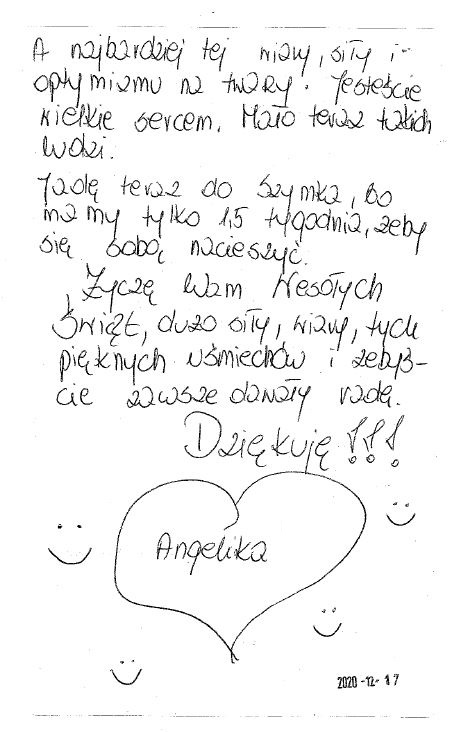 A najbardziej tej wiary, siły i
optymizmu na twarzy. Jesteście
wielkie sercem. Mało teraz takich
ludzi.
Jadę teraz do Szymka, bo
mamy tylko 1,5 tygodnia, żeby
się sobą nacieszyć.
Życzę Wam Wesołych
Świąt, dużo siły, wiary, tych
pięknych uśmiechów i żebyś-
cie zawsze dawały radę.
Dziękuję !!!
Angelika
2020-12-17